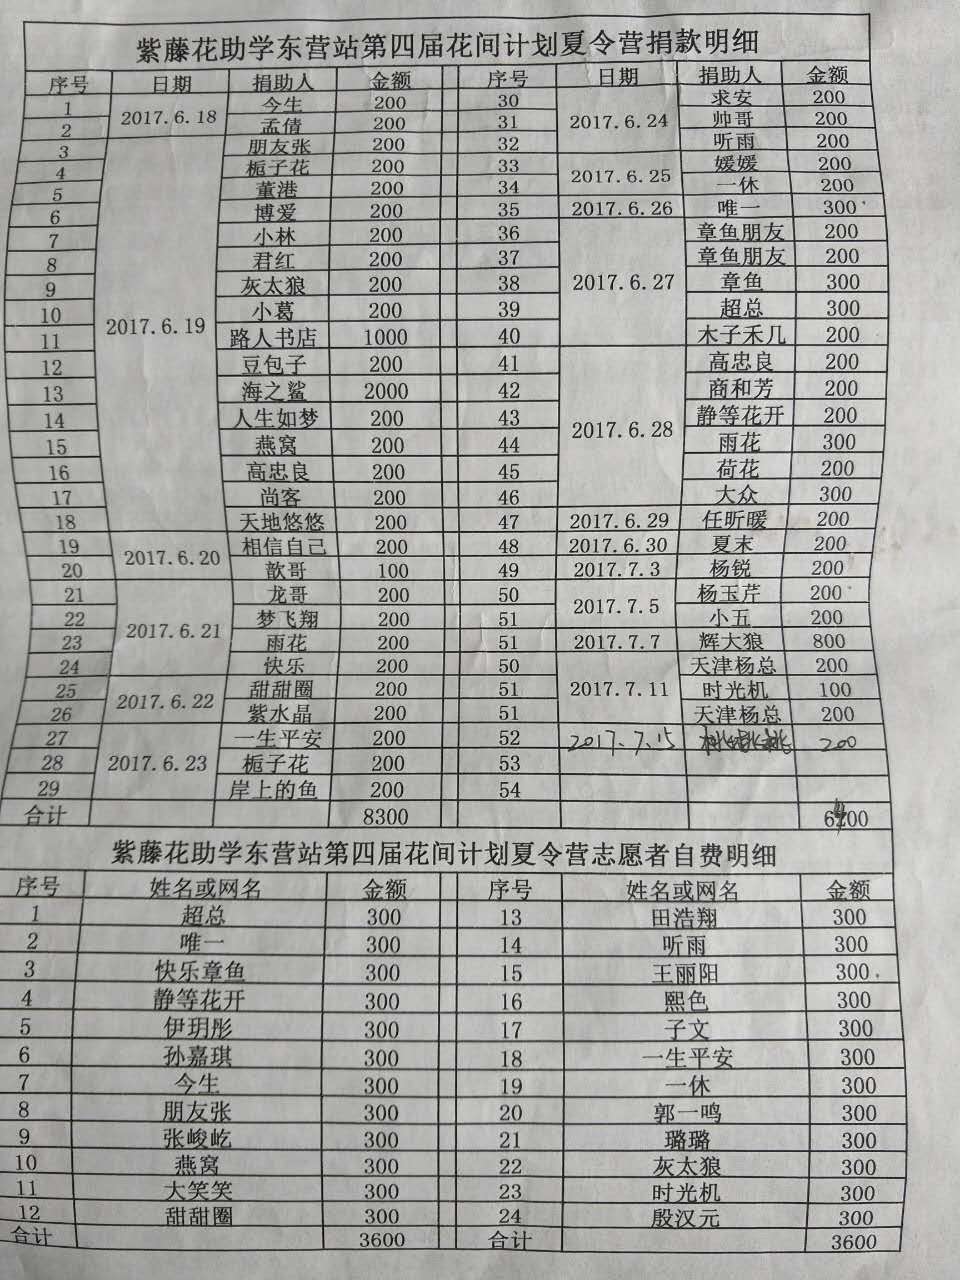 紫藤花助学东营站第四届花间计划夏令营捐款明细
序号 日期 捐助人 金额 序号 日期 捐助人 金额
1 2017.6.18 今生 200 30 2017.6.24 求安 200
2 孟倩 200 31 帅哥 200
3 2017.6.19 朋友张 200 32 听雨 200
4 栀子花 200 33 2017.6.25 媛媛 200
5 董港 200 34 一休 200
6 博爱 200 35 2017.6.26 唯一 300
7 小林 200 36 2017.6.27 章鱼朋友 200
8 君红 200 37 章鱼朋友 200
9 灰太狼 200 38 章鱼 300
10 小葛 200 39 超总 300
11 路人书店 1000 40 木子禾几 200
12 豆包子 200 41 2017.6.28 高忠良 200
13 海之鲨 2000 42 商和芳 200
14 人生如梦 200 43 静等花开 200
15 燕窝 200 44 雨花 300
16 高忠良 200 45 荷花 200
17 尚客 200 46 大众 300
18 天地悠悠 200 47 2017.6.29 任昕暖 200
19 2017.6.20 相信自己 200 48 2017.6.30 夏末 200
20 歆哥 100 49 2017.7.3 杨锐 200
21 2017.6.21 龙哥 200 50 2017.7.5 杨玉芹 200
22 梦飞翔 200 51 小五 200
23 雨花 200 51 2017.7.7 辉大狼 800
24 快乐 200 50 2017.7.11 天津杨总 200
25 2017.6.22 甜甜圈 200 51 时光机 100
26 紫水晶 200 51 天津杨总 200
27 2017.6.23 一生平安 200 52 2017.7.15 200
28 栀子花 200 53
29 岸上的鱼 200 54
合计 8300
紫藤花助学东营站第四届花间计划夏令营志愿者自费明细
序号 姓名或网名 金额 序号 姓名或网名 金额
1 超总 300 13 田浩翔 300
2 唯一 300 14 听雨 300
3 快乐章鱼 300 15 王丽阳 300
4 静等花开 300 16 熙色 300
5 伊玥彤 300 17 子文 300
6 孙嘉琪 300 18 一生平安 300
7 今生 300 19 一休 300
8 朋友张 300 20 郭一鸣 300
9 张峻屹 300 21 璐璐 300
10 燕窝 300 22 灰太狼 300
11 大笑笑 300 23 时光机 300
12 甜甜圈 300 24 殷汉元 300
合计 3600 合计 3600